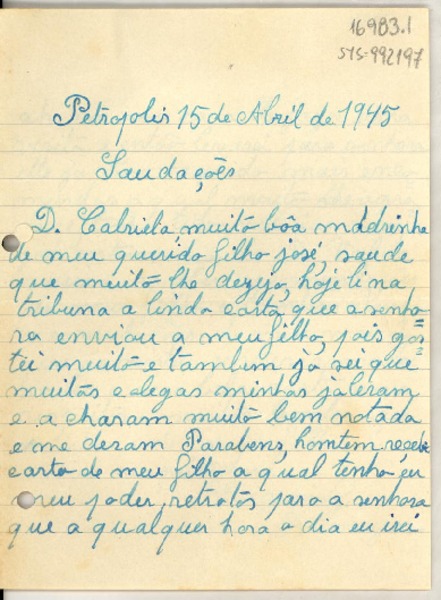 16983.1
SYS=992197
Petropolis 15 de Abril de 1945
Saudações
D. Gabriela muito bôa madrinha
de meu querido filho josé, saude
que muito lhe dezejo, hoje li na
tribuna a linda carta que a senho=
ra enviou a meu filho, pois gos=
tei muito e tambim ja sei que
muitas colegas minhas ja leram
e a charam muito bem notada
e me deram Parabens, homtem recebi
carta de meu filho a qual tenho eu
meu poder retratos para a senhora
que a qualquer hora o dia eu irei